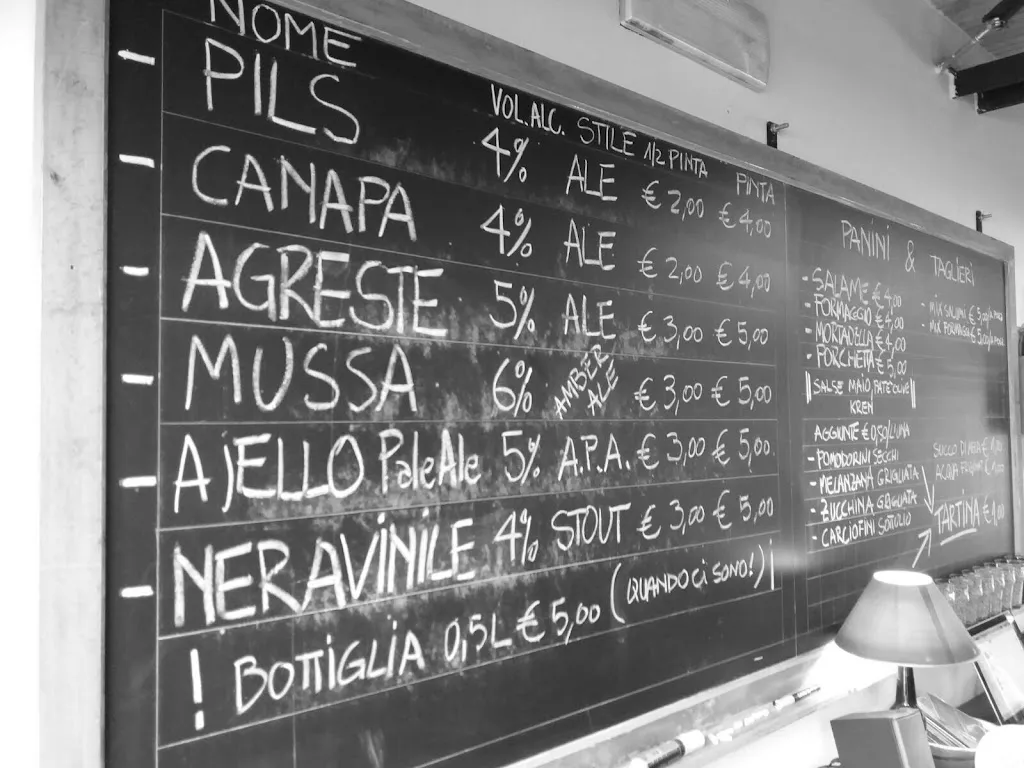 NOME VOL.ALC. STILE 1/2 PINTA PINTA
PILS 4% ALE € 2,00 € 4,00
CANAPA 4% ALE € 2,00 € 4,00
AGRESTE 5% ALE € 3,00 € 5,00
MUSSA 6% AMBER ALE € 3,00 € 5,00
AJELLO Pale Ale 5% A.P.A. € 3,00 € 5,00
NERAVINILE 4% STOUT € 3,00 € 5,00
! BOTTIGLIA 0,5L € 5,00 (QUANDO Ci SONO!)
PANINI & TAGLIERI
- SALAME € 4,00
- FORMAGGIO € 4,00
- MORTADELLA € 4,00
- PORCHETTA € 5,00
SALSE MAIO, PATE OLIVE
KREN
AGGIUNTE € 0,50/L'UNA
- POMODORINI SECCHI
- MELANZANA GRIGLIATA
- ZUCCHINA GRIGLIATA
- CARCIOFINI SOTTOLIO
- MIX SALUMI € 5,00
- MIX FORMAGGI
SUCCO DI MELA
ACQUA
TARTINA € 1,00